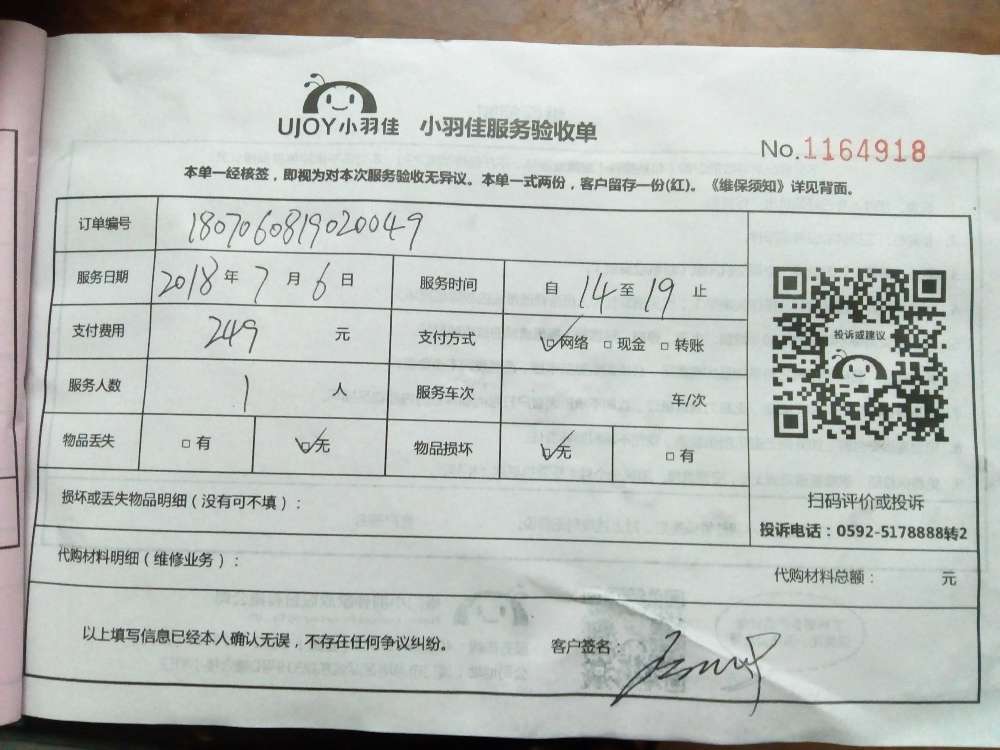 UJOY小羽佳 小羽佳服务验收单
No.1164918
本单一经核签，即视为对本次服务验收无异议。本单一式两份，客户留存一份(红)。《维保须知》详见背面。
订单编号 180706081902049
服务日期 2018年7月6日 服务时间 自14至19止
支付费用 249 元 支付方式 网络 现金 转账
投诉或建议
服务人数 1 人 服务车次 车/次
物品丢失 有 无 物品损坏 无 有
损坏或丢失物品明细（没有可不填）：
扫码评价或投诉
投诉电话：0592-5178888转2
代购材料明细（维修业务）：
代购材料总额： 元
以上填写信息已经本人确认无误，不存在任何争议纠纷。 客户签名：